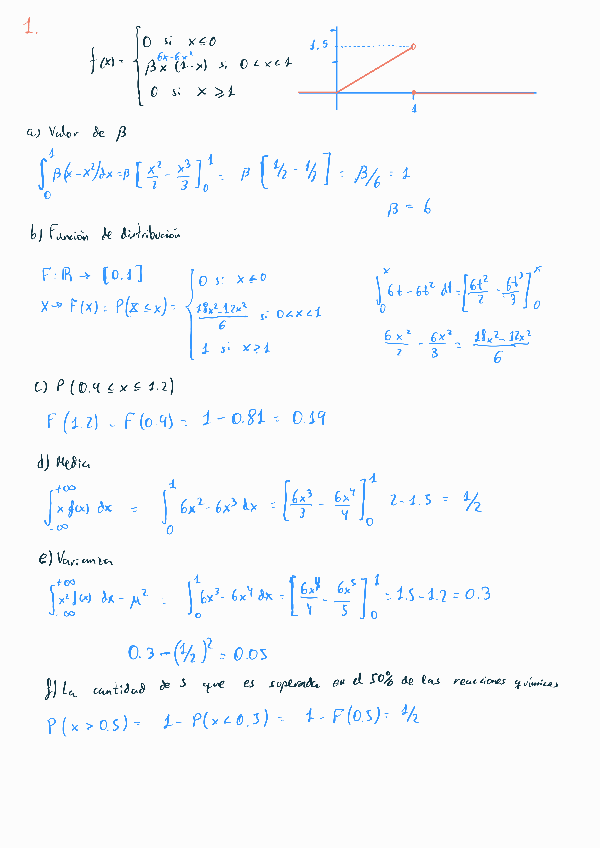 1.
f(x) = { 0 si x ≤ 0
6x-6x²
βx (1-x) si 0 < x < 1
0 si x ≥ 1
1.5
1
a.) Valor de β
∫₀¹ β(x-x²)dx = β [x²/2 - x³/3]₀¹ = β [1/2 - 1/3] = β/6 = 1
β = 6
b) Función de distribución
F: ℝ → [0.1]
X → F(x) = P(X ≤ x) = { 0 si x ≤ 0
(18x²-12x²)/6 si 0 < x < 1
1 si x ≥ 1
∫₀ˣ 6t - 6t² dt = [6t²/2 - 6t³/3]₀ˣ
6x²/2 - 6x²/3 = (18x²-12x²)/6
c) P (0.9 ≤ x ≤ 1.2)
F (1.2) - F(0.9) = 1 - 0.81 = 0.19
d) Media
∫₋∞⁺∞ x f(x) dx = ∫₀¹ 6x² - 6x³ dx = [6x³/3 - 6x⁴/4]₀¹ 2 - 1.5 = 1/2
e) Varianza
∫₋∞⁺∞ x² f(x) dx - μ² = ∫₀¹ 6x³ - 6x⁴ dx = [6x⁴/4 - 6x⁵/5]₀¹ = 1.5 - 1.2 = 0.3
0.3 - (1/2)² = 0.05
f) La cantidad de S que es superada en el 50% de las reacciones químicas
P (x > 0.5) = 1 - P(x < 0.3) = 1 - F(0.5) = 1/2